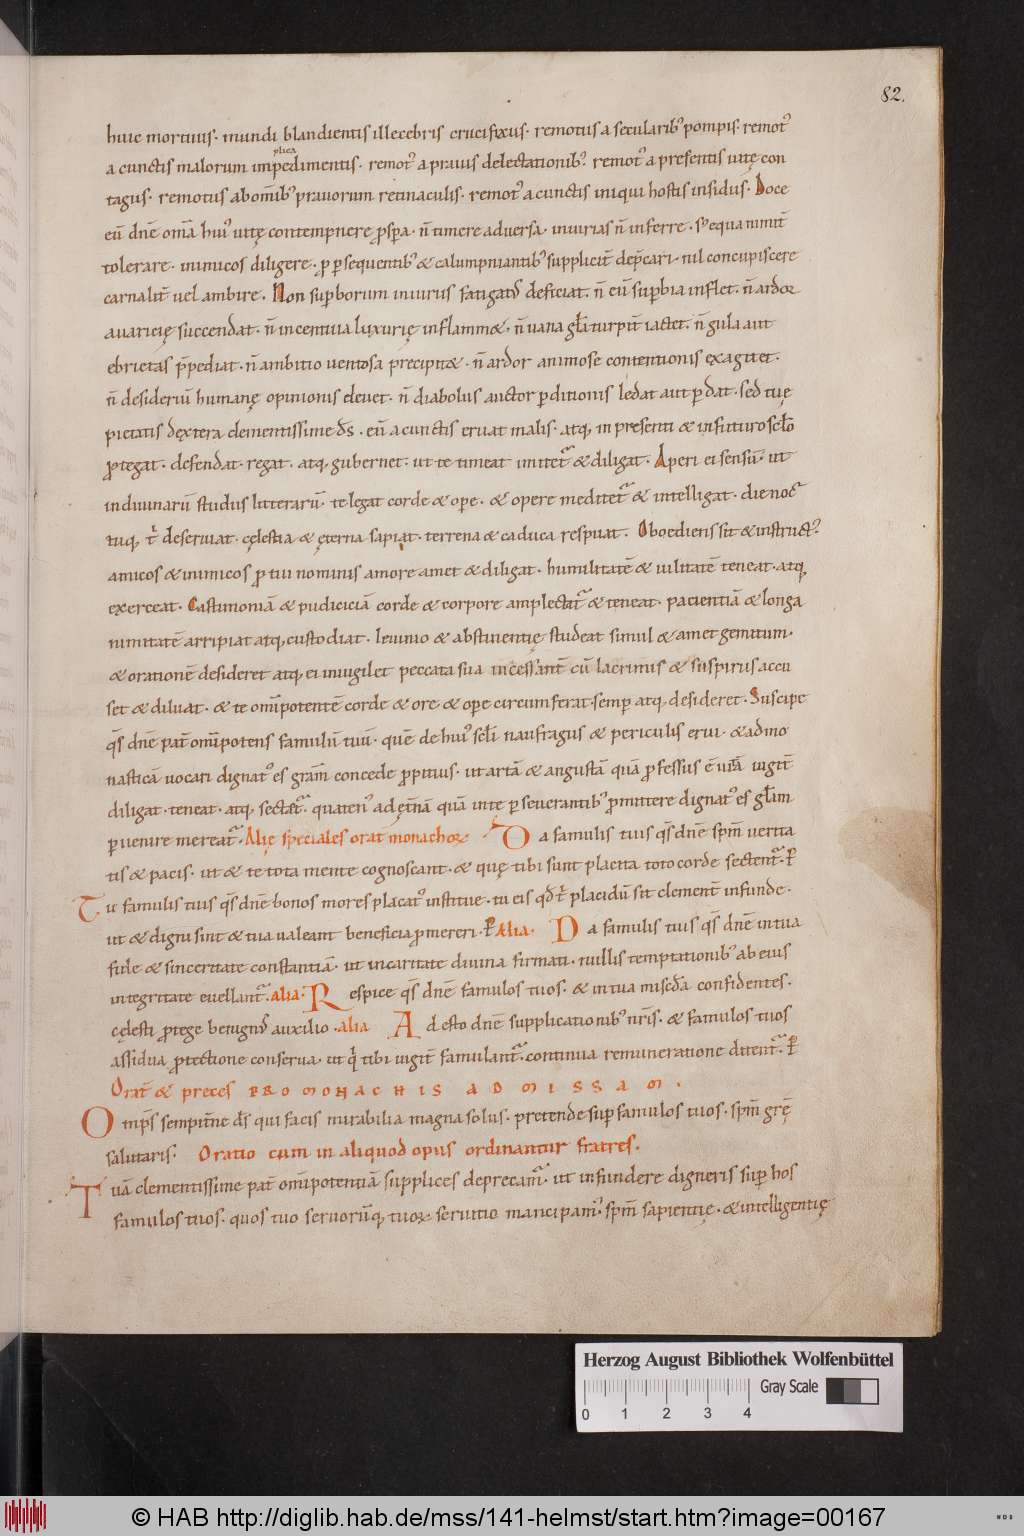 82.
huic mortuus. mundi blandientis illecebris crucifixus. remotus a secularib' pompis. remot'
plica
a cunctis malorum impedimentis. remot' a prauis delectationib'. remot' a presentis uitę con
tagiis. remotus ab om̄ib' prauorum retinaculis. remot' a cunctis iniqui hostis insidiis. Doce
eū dn̄e om̄a hui' uitę contempnere ꝓsp̱a. n̄ timere aduersa. iniurias n̄ inferre. s; equanimit̄
tolerare. inimicos diligere. ꝓ ꝑsequentib' & calumpniantib' supplicit̄ dep̄cari. nil concupiscere
carnalit̄ uel ambire. Non suꝑborum iniuriis fatigat' deficiat. n̄ eū suꝑbia inflet. n̄ ardor
auaricię succendat. n̄ incentiua luxurię inflamm&. n̄ uana gl̄a turpit̄ iactet. n̄ gula aut
ebrietas p̄pediat. n̄ ambitio uentosa precipit&. n̄ ardor animose contentionis exagitet.
n̄ desideriū humanę opinionis eleuet. n̄ diabolus auctor ꝑditionis ledat aut ꝑdat. sed tuę
pietatis dextera clementissime d̄s. eū a cunctis eruat malis. atq; in presenti & in futuro scl̄o
ꝓtegat. defendat. regat. atq; gubernet. ut te timeat imitet~ & diligat. Aperi ei sensū. ut
in diuinarū studiis litterarū. te legat corde & ope. & opere meditet~ & intelligat. die noct~
tuq; t' deseruiat. cęlestia & ęterna sapiat. terrena & caduca respuat. Oboediens sit & instruct'.
amicos & inimicos ꝓ tui nominis amore amet & diligat. humilitatē & uilitatē teneat. atq;
exerceat. Castimoniā & pudiciciā corde & corpore amplectat~ & teneat. pacientiā & longa
nimitatē arripiat atq; custodiat. Ieiunio & abstinentię studeat simul & amet gemitum.
& orationē desideret atq; ei inuigilet peccata sua incessant̄ cū lacrimis & suspiriis accu
set & diluat. & te om̄ipotentē corde & ore & ope circumferat. semꝑ atq; desideret. Suscipe
q̄s dn̄e pat̄ om̄ipotens famulū tuū. quē de hui' scl̄i naufragiis & periculis erui. & ad mo
nasticā uocari dignat' es gr̄am concede ꝓpitius. ut artā & angustā quā ꝓfessus ē uiā iugit̄
diligat. teneat. atq; sectet~. quaten' ad ęt̄nā quā in te ꝑseuerantib' ꝓmittere dignat' es gl̄am
ꝑuenire mereat~. Alię speciales orat̄ monachor~ Da famulis tuis q̄s dn̄e sp̄m uerita
tis & pacis. ut & te tota mente cognoscant. & quę tibi sunt placita toto corde sectent~. P̄
Tu famulis tuis q̄s dn̄e bonos mores placat' institue. tu eis qd t' placidū sit clement̄ infunde.
ut & digni sint & tua ualeant beneficia ꝓmereri. P̄ Alia. Da famulis tuis q̄s dn̄e in tua
fide & sinceritate constantiā. ut in caritate diuina firmati. nullis temptationib' ab eius
integritate euellant~. alia. Respice q̄s dn̄e famulos tuos. & in tua misc̄dia confidentes.
cęlesti ꝓtege benign' auxilio. alia Adesto dn̄e supplicationib' nr̄is. & famulos tuos
assidua ꝓtectione conserua. ut q' tibi iugit̄ famulant~. continua remuneratione ditent~. P̄
Orat̄ & preces PRO MONACHIS AD MISSAM.
Omp̄s sempit̄ne d̄s qui facis mirabilia magna solus. pretende suꝑ famulos tuos. sp̄m grę̄
salutaris. Oratio cum in aliquod opus ordinantur fratres.
Tuā clementissime pat̄ om̄ipotentiā supplices deprecam~. ut infundere digneris suꝑ hos
famulos tuos. quos tuo seruorūq; tuor~ seruitio mancipam'. sp̄m sapientię. & intelligentię
Herzog August Bibliothek Wolfenbüttel
Gray Scale
0 1 2 3 4
© HAB http://diglib.hab.de/mss/141-helmst/start.htm?image=00167